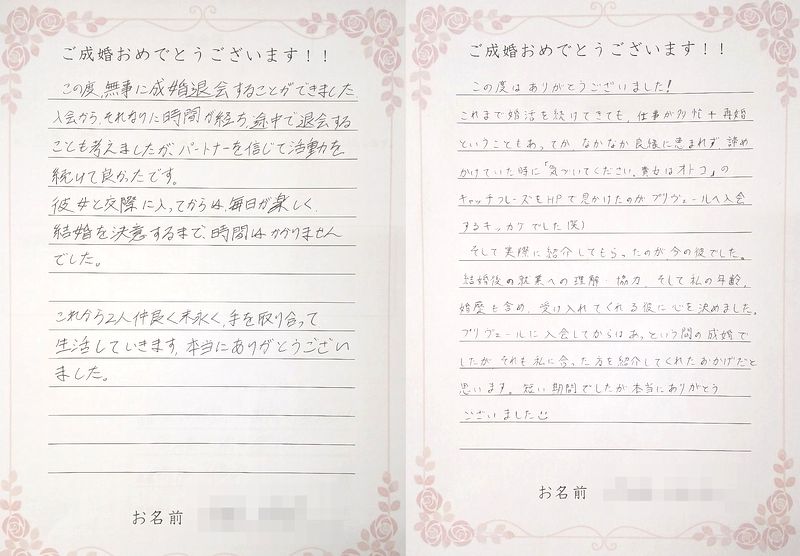 ご成婚おめでとうございます!!
この度、無事に成婚退会することができました。
入会から、それなりに時間が経ち、途中で退会する
ことも考えましたが、パートナーを信じて活動を
続けて良かったです。
彼女と交際に入ってからは、毎日が楽しく、
結婚を決意するまで、時間はかかりません
でした。
これから2人仲良く末永く、手を取り合って
生活していきます。本当にありがとうござい
ました。
お名前
ご成婚おめでとうございます!!
この度はありがとうございました!
これまで婚活を続けてきても、仕事が多忙+再婚
ということもあってか、なかなか良縁に恵まれず、諦め
かけていた時に「気づいてください、貴女はオトコ」の
キャッチフレーズをHPで見かけたのがブリヴェールへ入会
するキッカケでした(笑)
そして実際に紹介してもらったのが今の彼でした。
結婚後の就業への理解・協力、そして私の年齢、
婚歴も含め、受け入れてくれる彼に心を決めました。
ブリヴェールに入会してからはあっという間の成婚で
したが、それも私に合った方を紹介してくれたおかげだと
思います。短い期間でしたが本当にありがとう
ございました☺
お名前